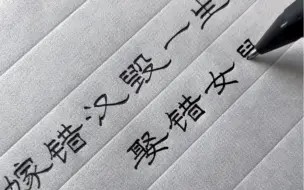 嫁错汉毁一生
娶错女毁